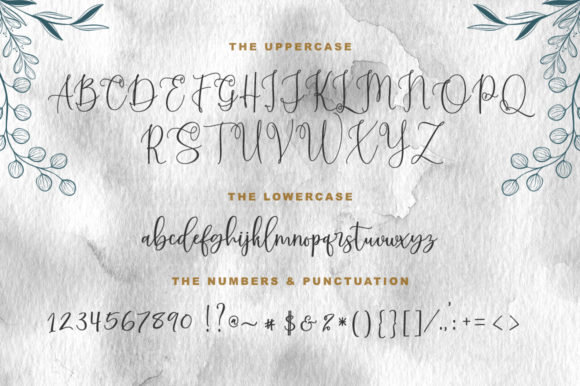 THE UPPERCASE
ABCDEFGHIJKLMNOPQ
RSTUVWXYZ
THE LOWERCASE
abcdefghijklmnopqrstuvwxyz
THE NUMBERS & PUNCTUATION
1234567890 !?@~#$&%*(){}[]/.,':+=<>